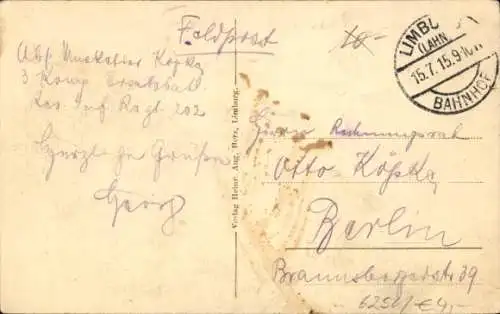 Feldpost
Abs. Musketier Köpke
3 Komp. Ersatzbatl.
Res. Inf. Regt. 202
Herzliche Grüße
Georg
Verlag Heinr. Aug. Herz, Limburg.
LIMBURG
(LAHN)
15.7.15.9-10V
BAHNHOF
10-
Herrn Rechnungsrat
Otto Köpke
Berlin
Braunsbergerstr 39
6251/€4,-